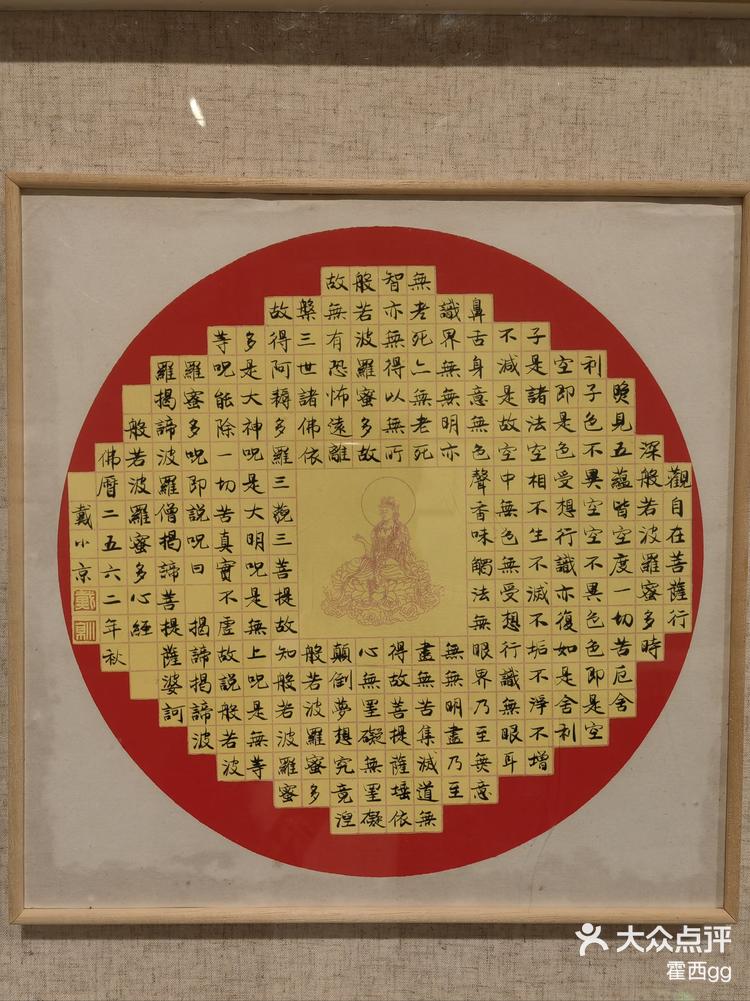 觀自在菩薩行
深般若波羅蜜多時
照見五蘊皆空度一切苦厄舍
利子色不異空空不異色色即是空
空即是色受想行識亦復如是舍利
子是諸法空相不生不滅不垢不淨不增
不減是故空中無色無受想行識無眼耳
鼻舌身意無色聲香味觸法無眼界乃至無意
識界無無明亦無無明盡乃至
無老死亦無老死盡無苦集滅道無
智亦無得以無所得故菩提薩埵依
般若波羅蜜多故心無罣礙無罣礙
故無有恐怖遠離顛倒夢想究竟涅
槃三世諸佛依般若波羅蜜多
故得阿耨多羅三藐三菩提故知般若波羅蜜
多是大神呪是大明呪是無上呪是無等
等呪能除一切苦真實不虛故說般若波
羅蜜多呪即說呪曰 揭諦揭諦波
羅揭諦波羅僧揭諦菩提薩婆訶
般若波羅蜜多心經
佛曆二五六二年秋
戴小京
大众点评
霍西gg